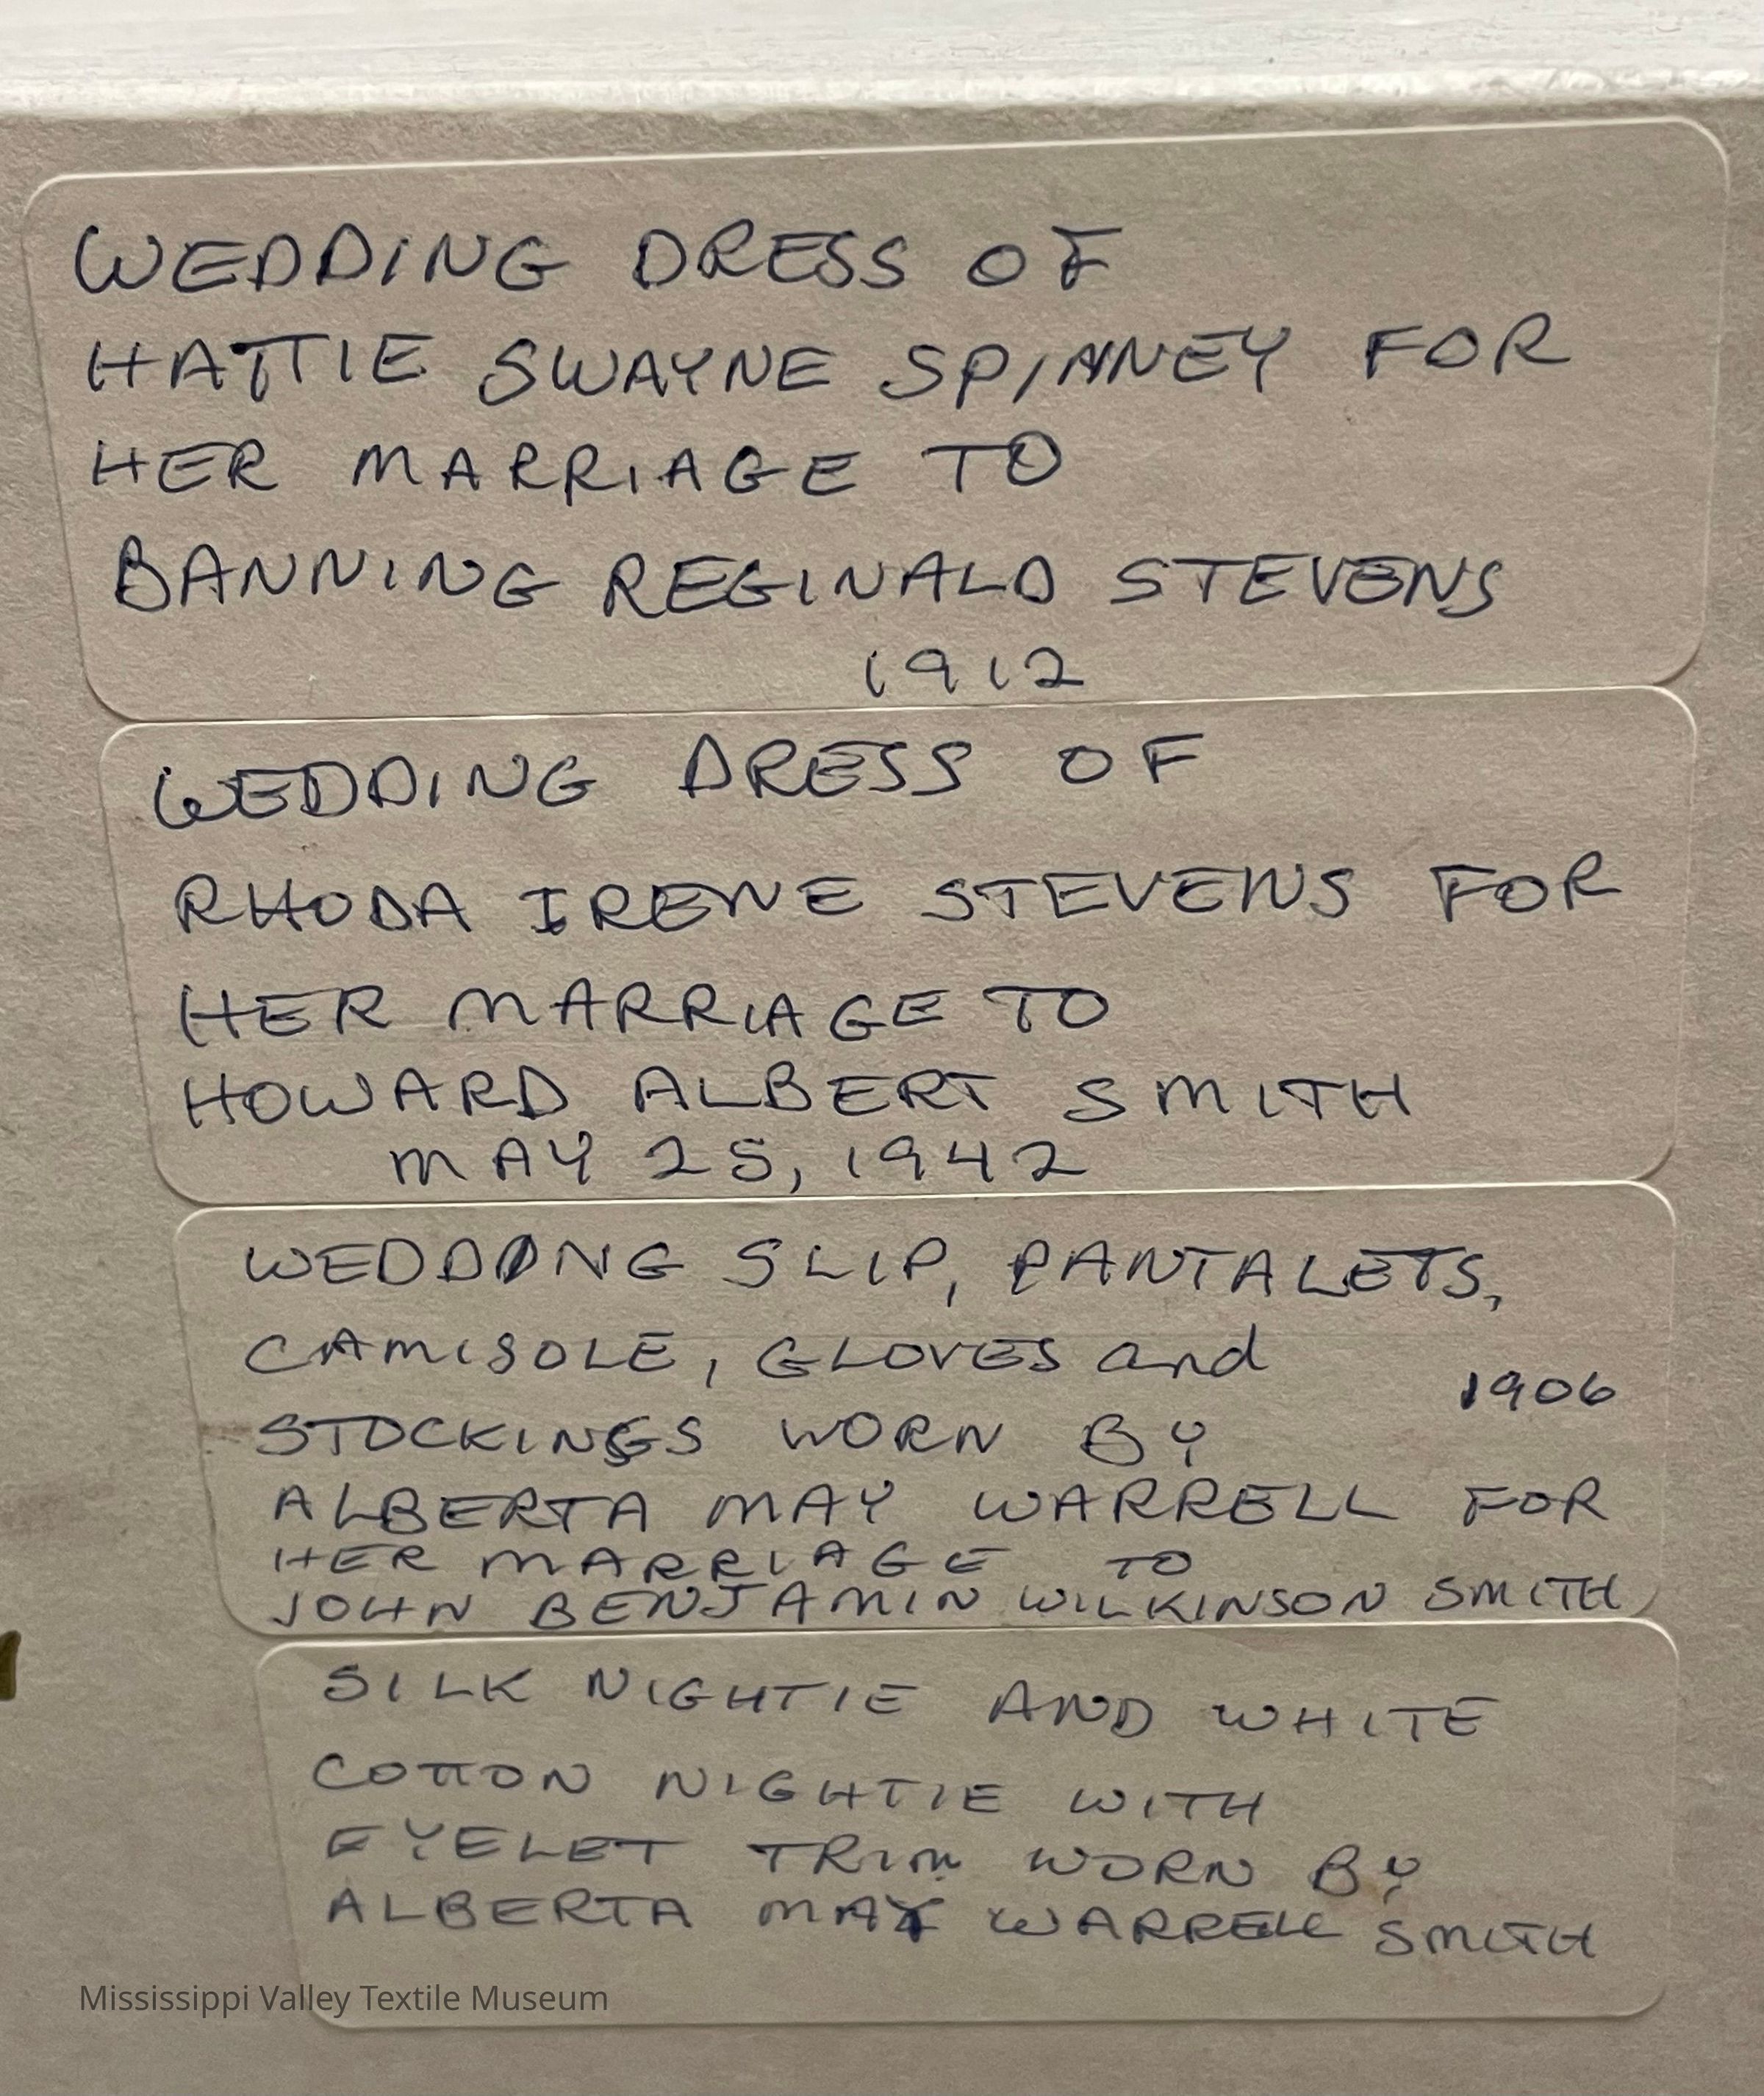 WEDDING DRESS OF
HATTIE SWAYNE SPINNEY FOR
HER MARRIAGE TO
BANNING REGINALD STEVENS
1912
WEDDING DRESS OF
RHODA IRENE STEVENS FOR
HER MARRIAGE TO
HOWARD ALBERT SMITH
MAY 25, 1942
WEDDING SLIP, PANTALETS,
CAMISOLE, GLOVES and
1906
STOCKINGS WORN BY
ALBERTA MAY WARRELL FOR
HER MARRIAGE TO
JOHN BENJAMIN WILKINSON SMITH
SILK NIGHTIE AND WHITE
COTTON NIGHTIE WITH
EYELET TRIM WORN BY
ALBERTA MAY WARRELL SMITH
Mississippi Valley Textile Museum